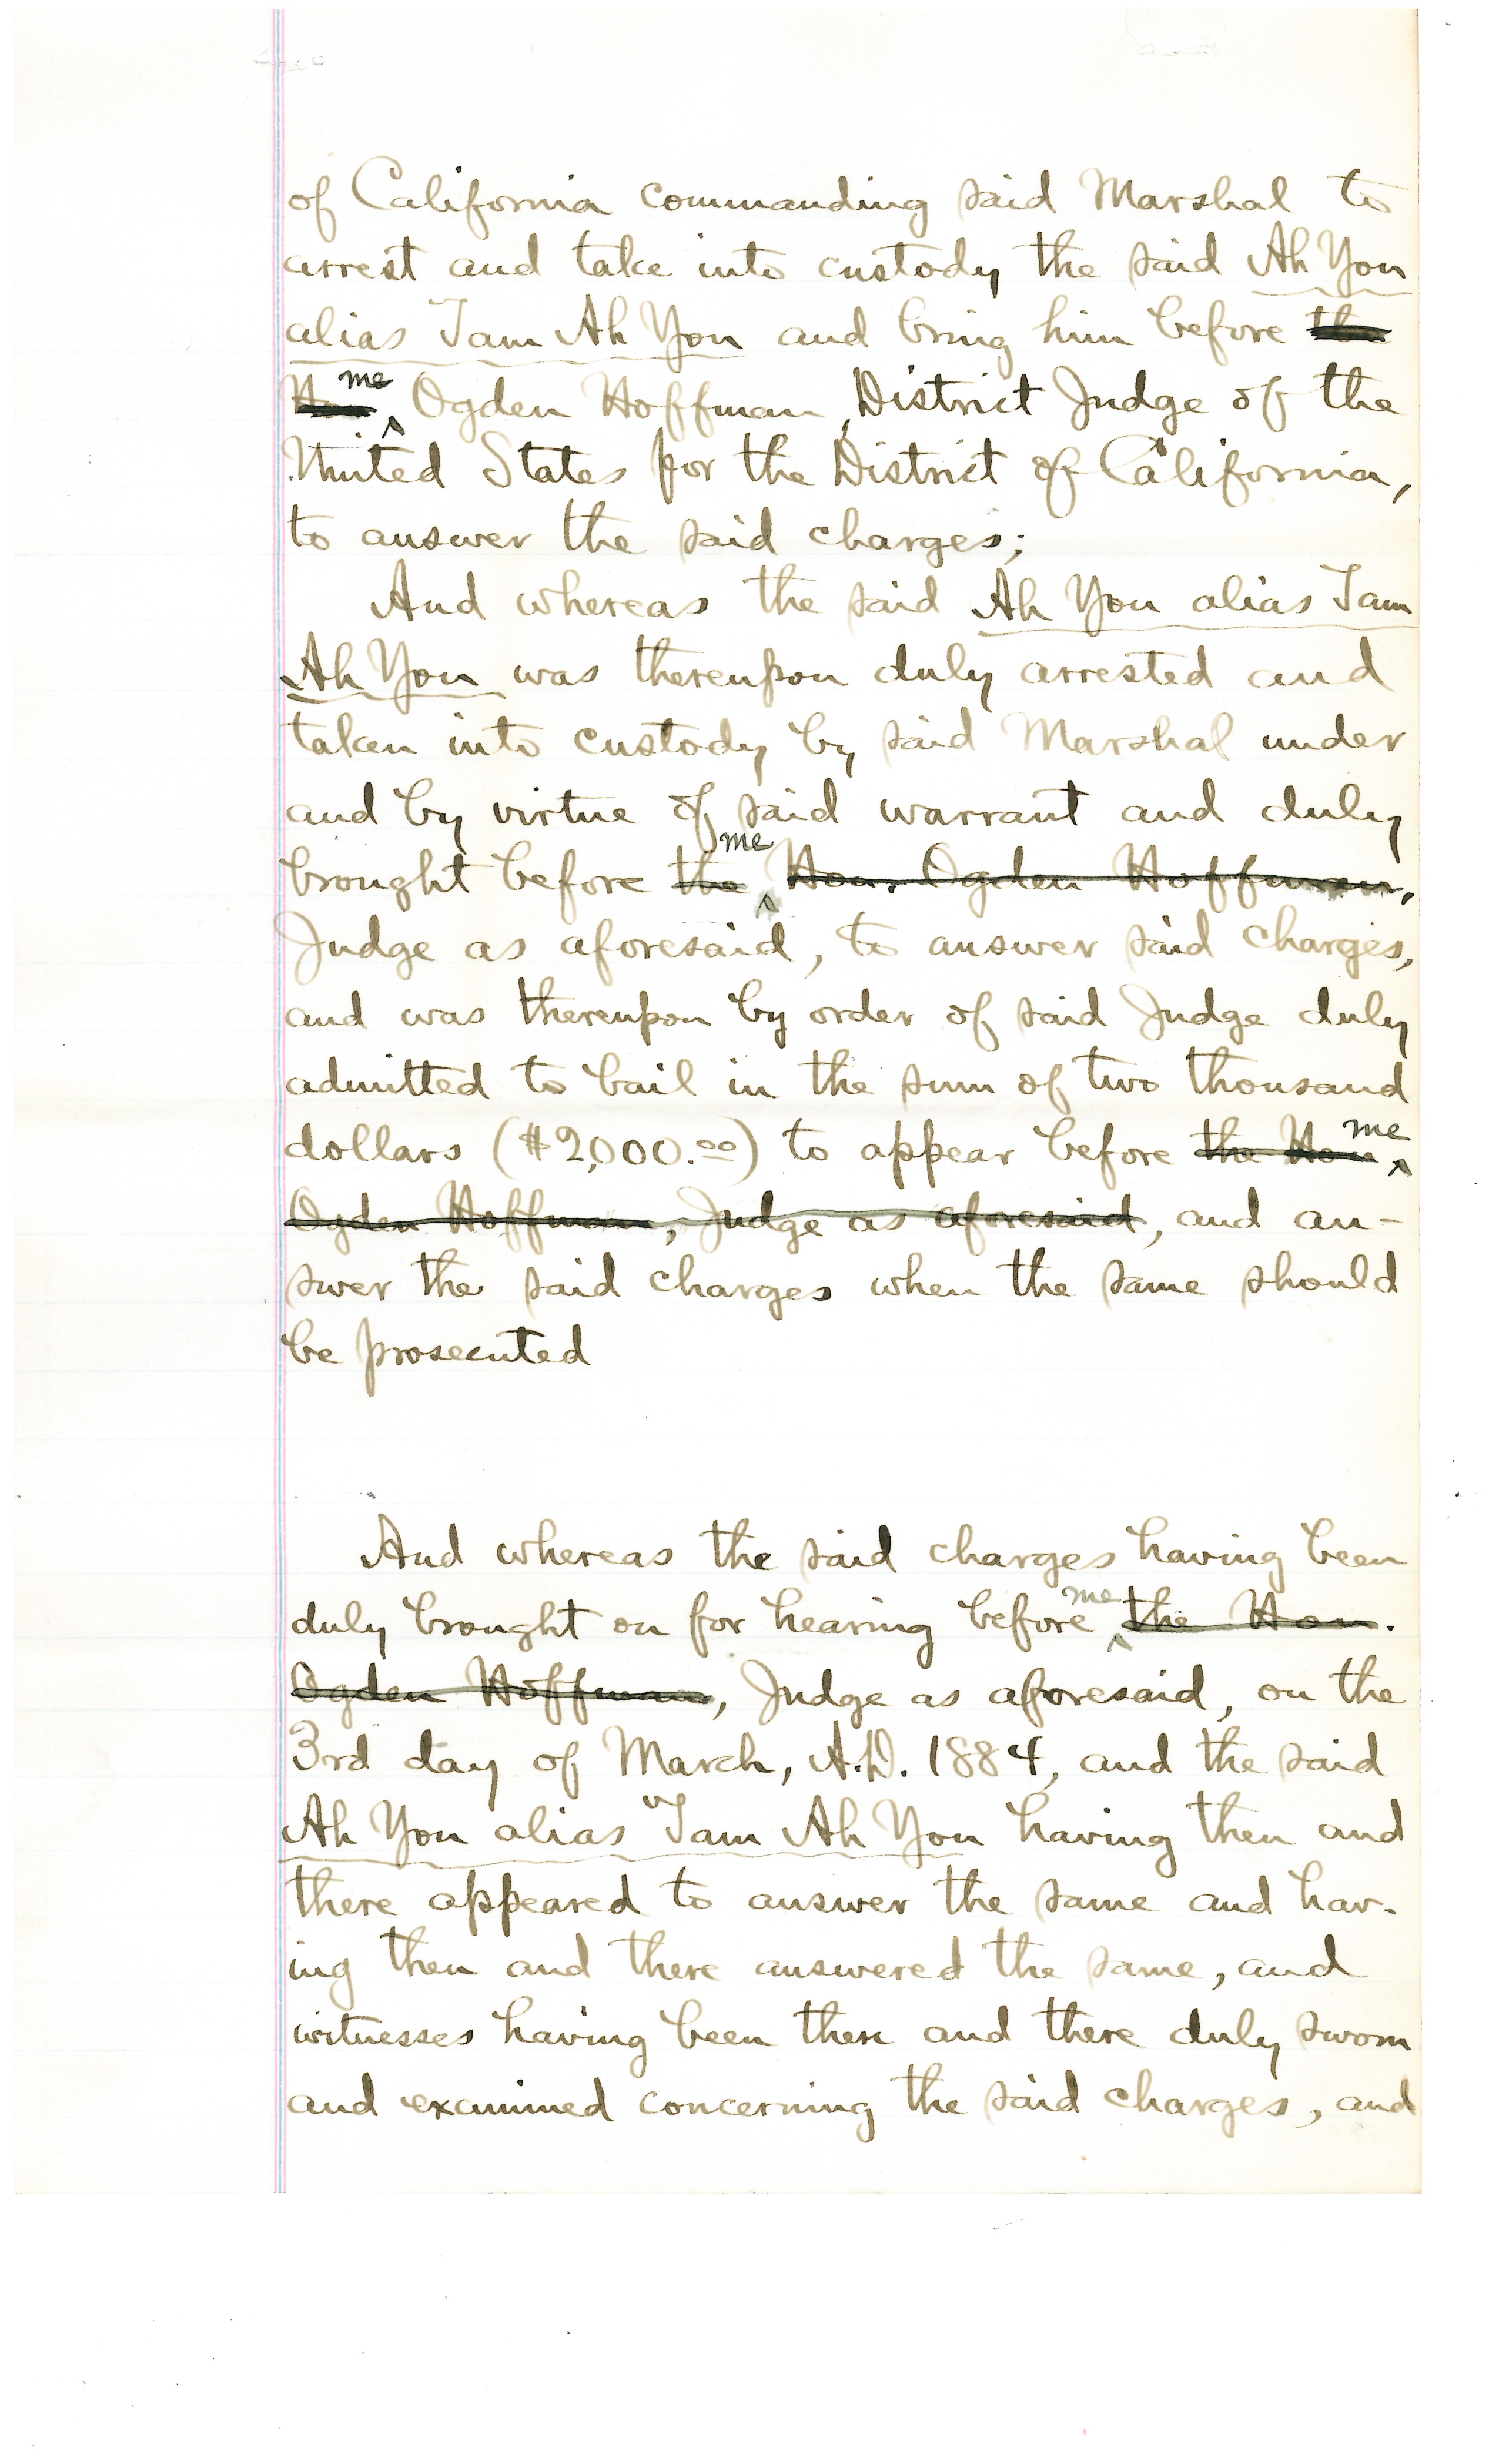 of California commanding said Marshal to
arrest and take into custody the said Ah You
alias Tam Ah You and bring him before the
Hon me Ogden Hoffman, District Judge of the
United States for the District of California,
to answer the said charges;
And whereas the said Ah You alias Tam
Ah You was thereupon duly arrested and
taken into custody by said Marshal under
and by virtue of said warrant and duly
brought before the me Hon. Ogden Hoffman,
Judge as aforesaid, to answer said charges,
and was thereupon by order of said Judge duly
admitted to bail in the sum of two thousand
dollars ($2,000.00) to appear before the Hon me
Ogden Hoffman, Judge as aforesaid, and an-
swer the said charges when the same should
be prosecuted
And whereas the said charges having been
duly brought on for hearing before me the Hon.
Ogden Hoffman, Judge as aforesaid, on the
3rd day of March, A.D. 1884, and the said
Ah You alias Tam Ah You having then and
there appeared to answer the same and hav-
ing then and there answered the same, and
witnesses having been then and there duly sworn
and examined concerning the said charges, and